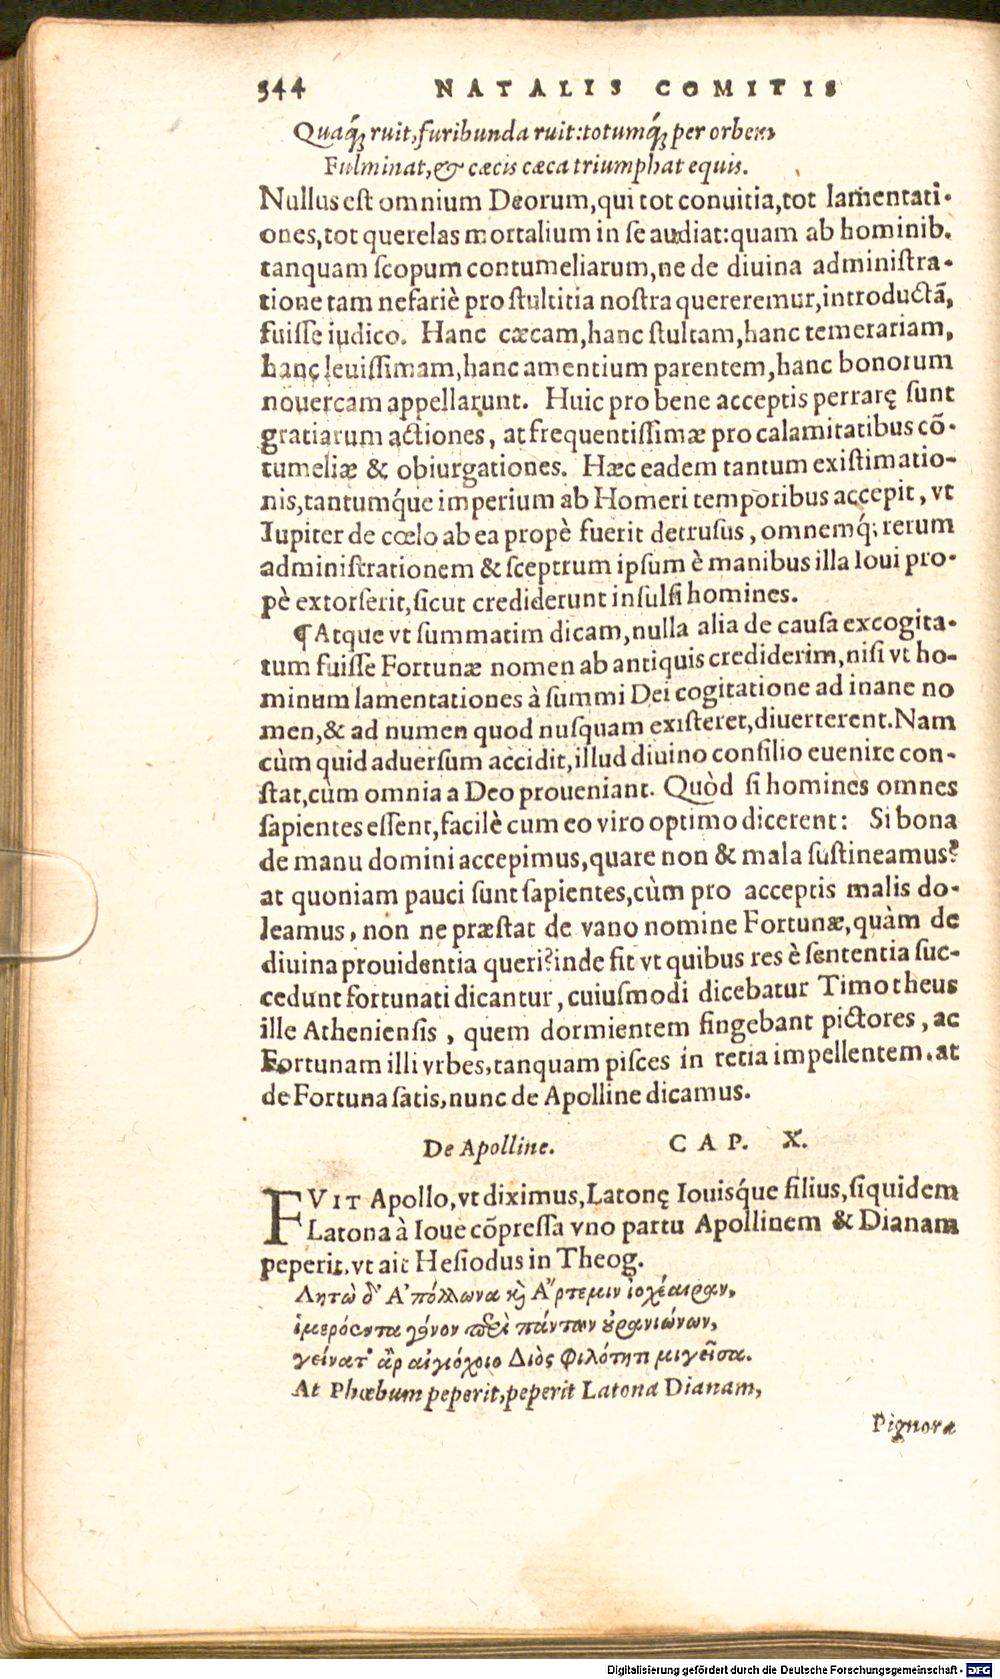 344 NATALIS COMITIS
Quaq́; ruit, furibunda ruit: totumq́; per orbem
Fulminat, & cæcis cæca triumphat equis.
Nullus est omnium Deorum, qui tot conuitia, tot lamentati-
ones, tot querelas mortalium in se audiat: quam ab hominib.
tanquam scopum contumeliarum, ne de diuina administra-
tione tam nefariè pro stultitia nostra quereremur, introductã,
fuisse iudico. Hanc cæcam, hanc stultam, hanc temerariam,
hanc leuissimam, hanc amentium parentem, hanc bonorum
nouercam appellarunt. Huic pro bene acceptis perrarę sunt
gratiarum actiones, at frequentissimæ pro calamitatibus cõ-
tumeliæ & obiurgationes. Hæc eadem tantum existimatio-
nis, tantumq́ue imperium ab Homeri temporibus accepit, vt
Iupiter de cœlo ab ea propè fuerit detrusus, omnemq́; rerum
administrationem & sceptrum ipsum è manibus illa Ioui pro-
pè extorserit, sicut crediderunt insulsi homines.
¶ Atque vt summatim dicam, nulla alia de causa excogita-
tum fuisse Fortunæ nomen ab antiquis crediderim, nisi vt ho-
minum lamentationes à summi Dei cogitatione ad inane no
men, & ad numen quod nusquam existeret, diuerterent. Nam
cùm quid aduersum accidit, illud diuino consilio euenire con-
stat, cùm omnia a Deo proueniant. Quòd si homines omnes
sapientes essent, facilè cum eo viro optimo dicerent: Si bona
de manu domini accepimus, quare non & mala sustineamus?
at quoniam pauci sunt sapientes, cùm pro acceptis malis do-
leamus, non ne præstat de vano nomine Fortunæ, quàm de
diuina prouidentia queri? inde fit vt quibus res è sententia suc-
cedunt fortunati dicantur, cuiusmodi dicebatur Timotheus
ille Atheniensis, quem dormientem fingebant pictores, ac
Fortunam illi vrbes, tanquam pisces in retia impellentem. at
de Fortuna satis, nunc de Apolline dicamus.
De Apolline. CAP. X.
FVIT Apollo, vt diximus, Latonę Iouisq́ue filius, siquidem
Latona à Ioue cõpressa vno partu Apollinem & Dianam
peperit. vt ait Hesiodus in Theog.
Λητὼ δ' Α'πόλλωνα καὶ Α῎ρτεμιν ἰοχέαιραν,
ἱμερόεντα γόνον περὶ πάντων οὐρανιώνων,
γείνατ' ἂρ αἰγιόχοιο Διὸς φιλότητι μιγεῖσα.
At Phœbum peperit, peperit Latona Dianam,
Pignora
Digitalisierung gefördert durch die Deutsche Forschungsgemeinschaft - DFG